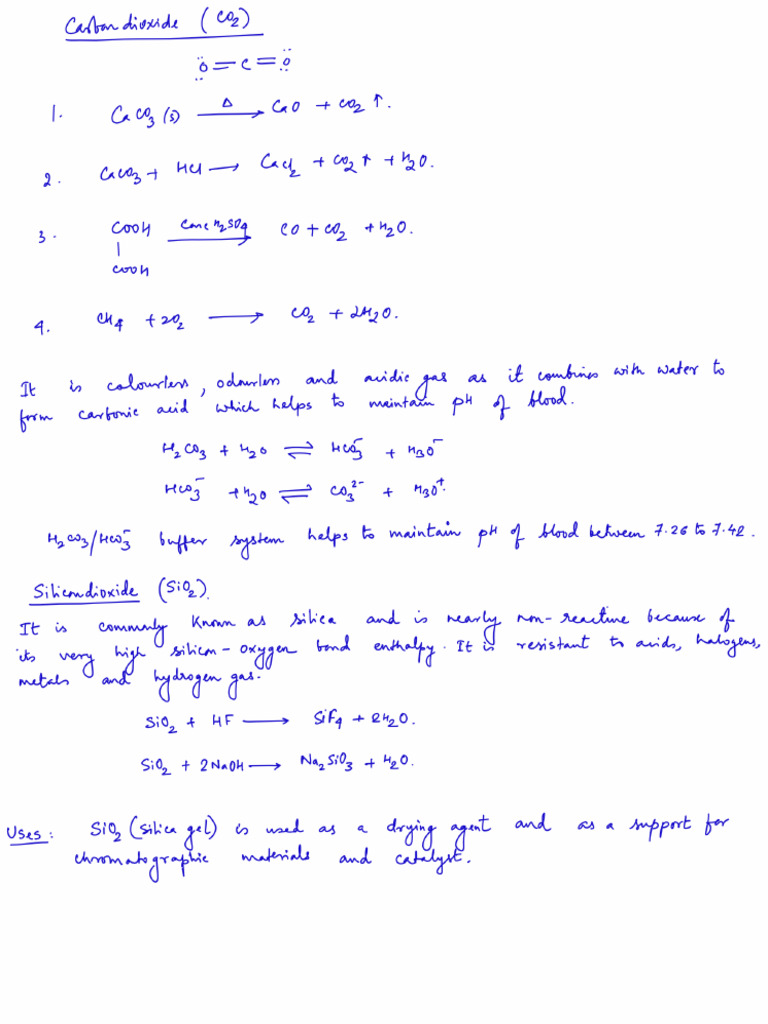 Carbondioxide (CO₂)
:Ö=C=Ö:
1. CaCO₃(s) —Δ→ CaO + CO₂↑.
2. CaCO₃ + HCl → CaCl₂ + CO₂↑ + H₂O.
3. COOH —Conc H₂SO₄→ CO + CO₂ + H₂O.
|
COOH
4. CH₄ + 2O₂ → CO₂ + 2H₂O.
It is colourless, odourless and acidic gas as it combines with water to
form carbonic acid which helps to maintain pH of blood.
H₂CO₃ + H₂O ⇌ HCO₃⁻ + H₃O⁻
HCO₃⁻ + H₂O ⇌ CO₃²⁻ + H₃O⁺.
H₂CO₃/HCO₃⁻ buffer system helps to maintain pH of blood between 7.26 to 7.42.
Silicondioxide (SiO₂).
It is commonly known as silica and is nearly non-reactive because of
its very high silicon-oxygen bond enthalpy. It is resistant to acids, halogens,
metals and hydrogen gas.
SiO₂ + HF → SiF₄ + 2H₂O.
SiO₂ + 2NaOH → Na₂SiO₃ + H₂O.
Uses: SiO₂ (silica gel) is used as a drying agent and as a support for
chromatographic materials and catalyst.